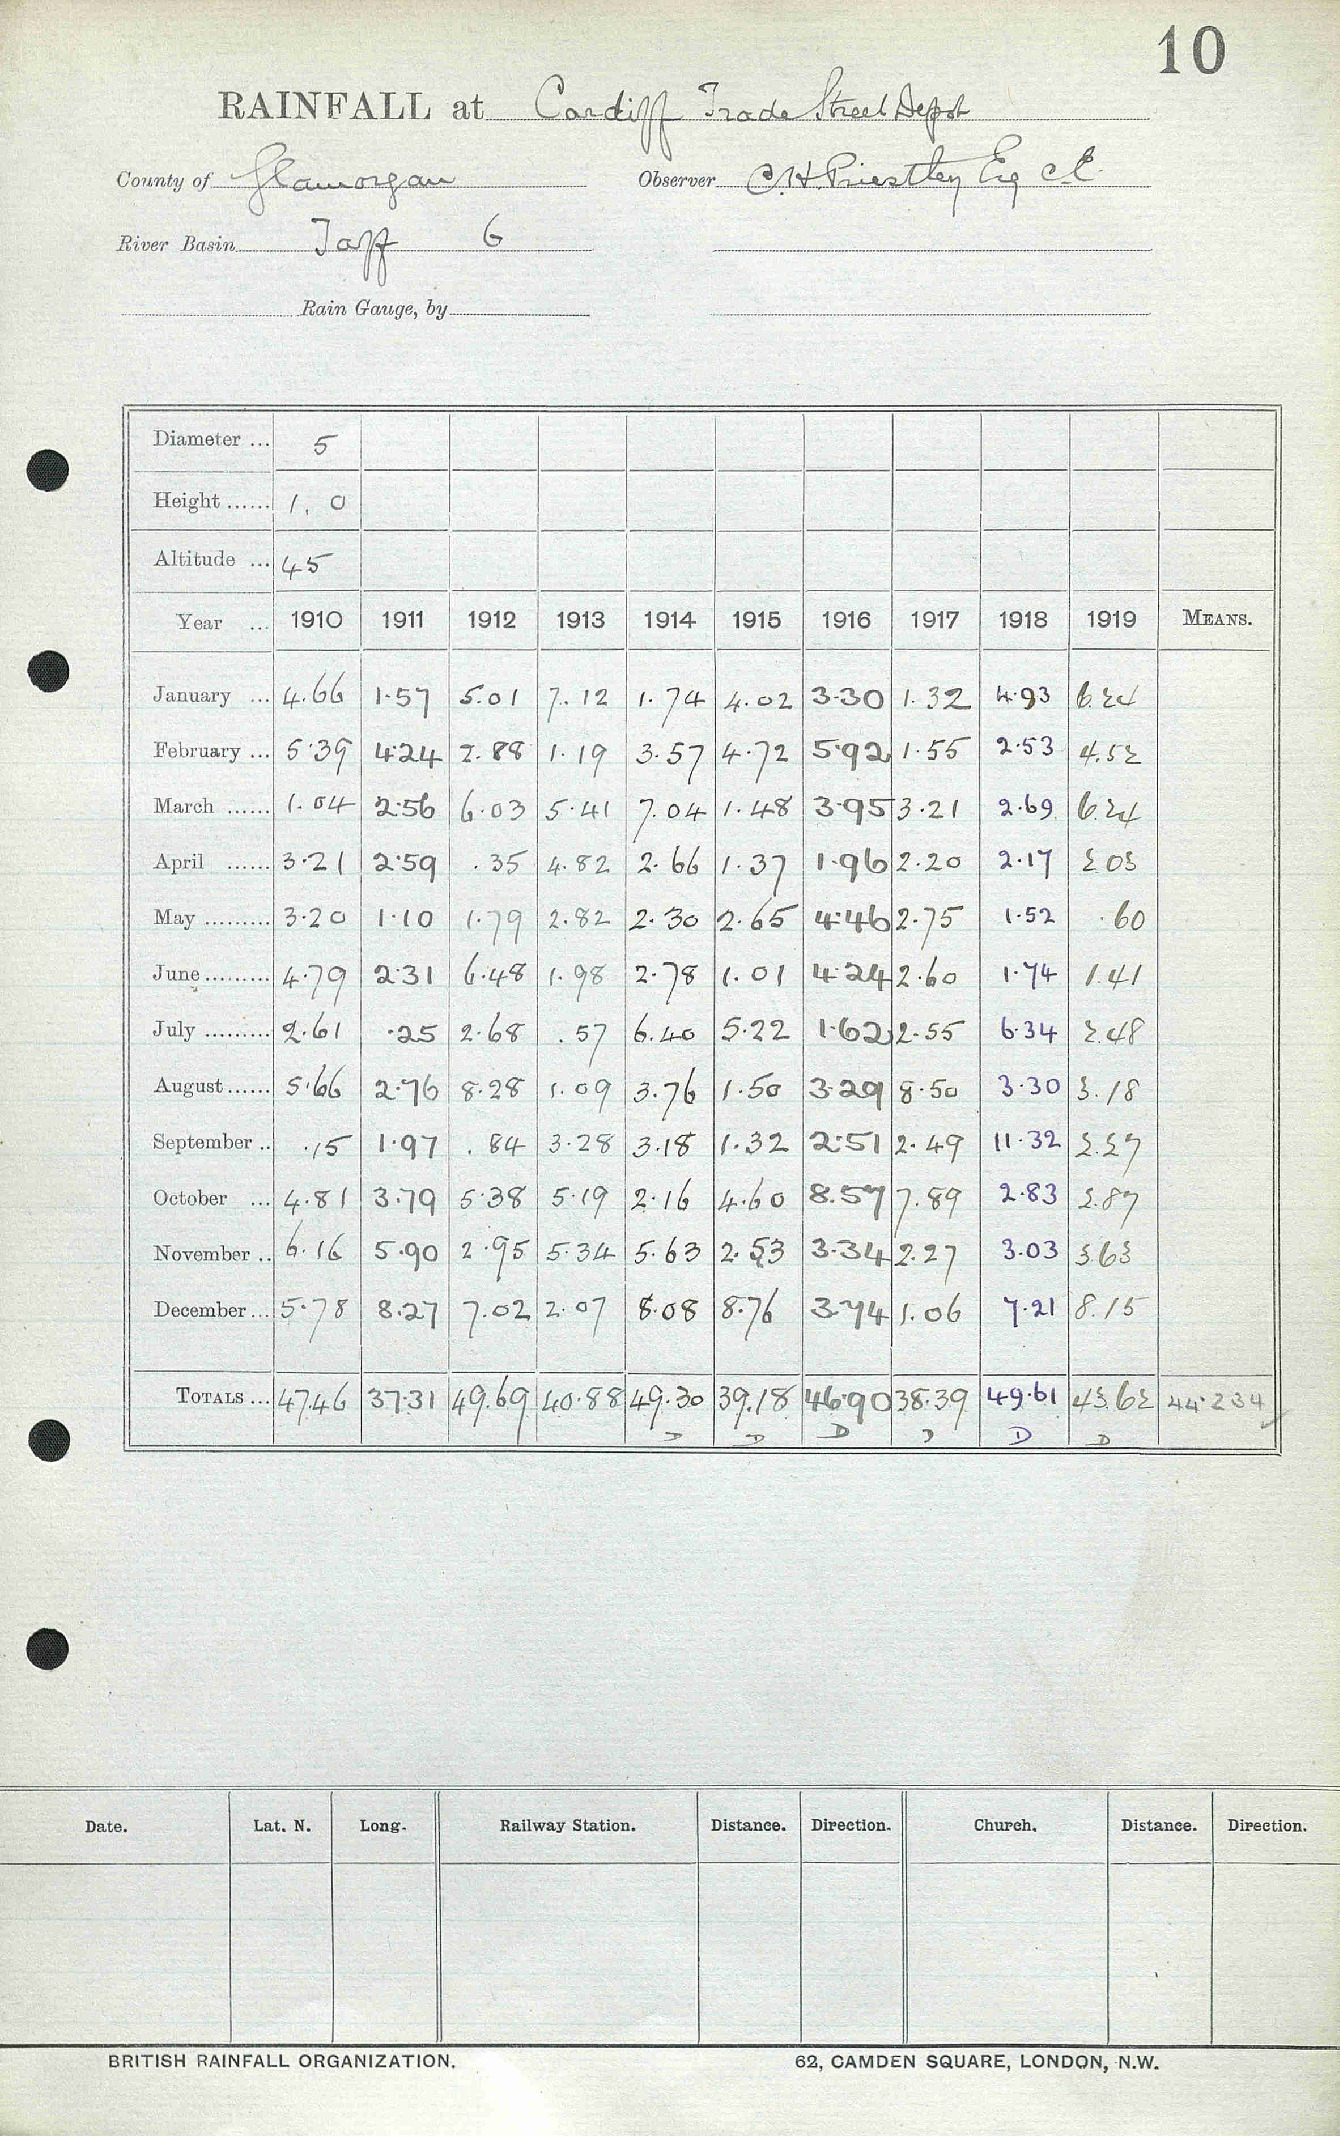 10
RAINFALL at Cardiff Trade Street Depot
County of Glamorgan Observer C.H. Priestley Esq C.E.
River Basin Taff 6
Rain Gauge, by
Diameter ... 5
Height ...... 1. 0
Altitude ... 45
Year ... 1910 1911 1912 1913 1914 1915 1916 1917 1918 1919 MEANS.
January ... 4.66 1.57 5.01 7.12 1.74 4.02 3.30 1.32 4.93 6.24
February ... 5.39 4.24 2.88 1.19 3.57 4.72 5.92 1.55 2.53 4.52
March ...... 1.04 2.56 6.03 5.41 7.04 1.48 3.95 3.21 2.69 6.24
April ...... 3.21 2.59 .35 4.82 2.66 1.37 1.96 2.20 2.17 2.03
May ......... 3.20 1.10 1.79 2.82 2.30 2.65 4.46 2.75 1.52 .60
June ......... 4.79 2.31 6.48 1.98 2.78 1.01 4.24 2.60 1.74 1.41
July ......... 2.61 .25 2.68 .57 6.40 5.22 1.62 2.55 6.34 2.48
August ...... 5.66 2.76 8.28 1.09 3.76 1.50 3.29 8.50 3.30 3.18
September .. .15 1.97 .84 3.28 3.18 1.32 2.51 2.49 11.32 2.27
October ... 4.81 3.79 5.38 5.19 2.16 4.60 8.57 7.89 2.83 2.87
November .. 6.16 5.90 2.95 5.34 5.63 2.53 3.34 2.27 3.03 3.63
December ... 5.78 8.27 7.02 2.07 8.08 8.76 3.74 1.06 7.21 8.15
TOTALS ... 47.46 37.31 49.69 40.88 49.30 39.18 46.90 38.39 49.61 43.62 44.234
D D D D D D
Date. Lat. N. Long. Railway Station. Distance. Direction. Church. Distance. Direction.
BRITISH RAINFALL ORGANIZATION. 62, CAMDEN SQUARE, LONDON, N.W.